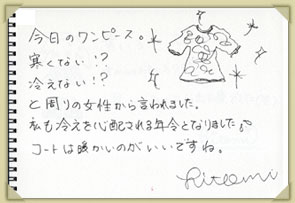 今日のワンピース。
寒くない!?
冷えない!?
と周りの女性から言われました。
私も冷えを心配される年令となりました。
コートは暖かいのがいいですね。
Hitomi